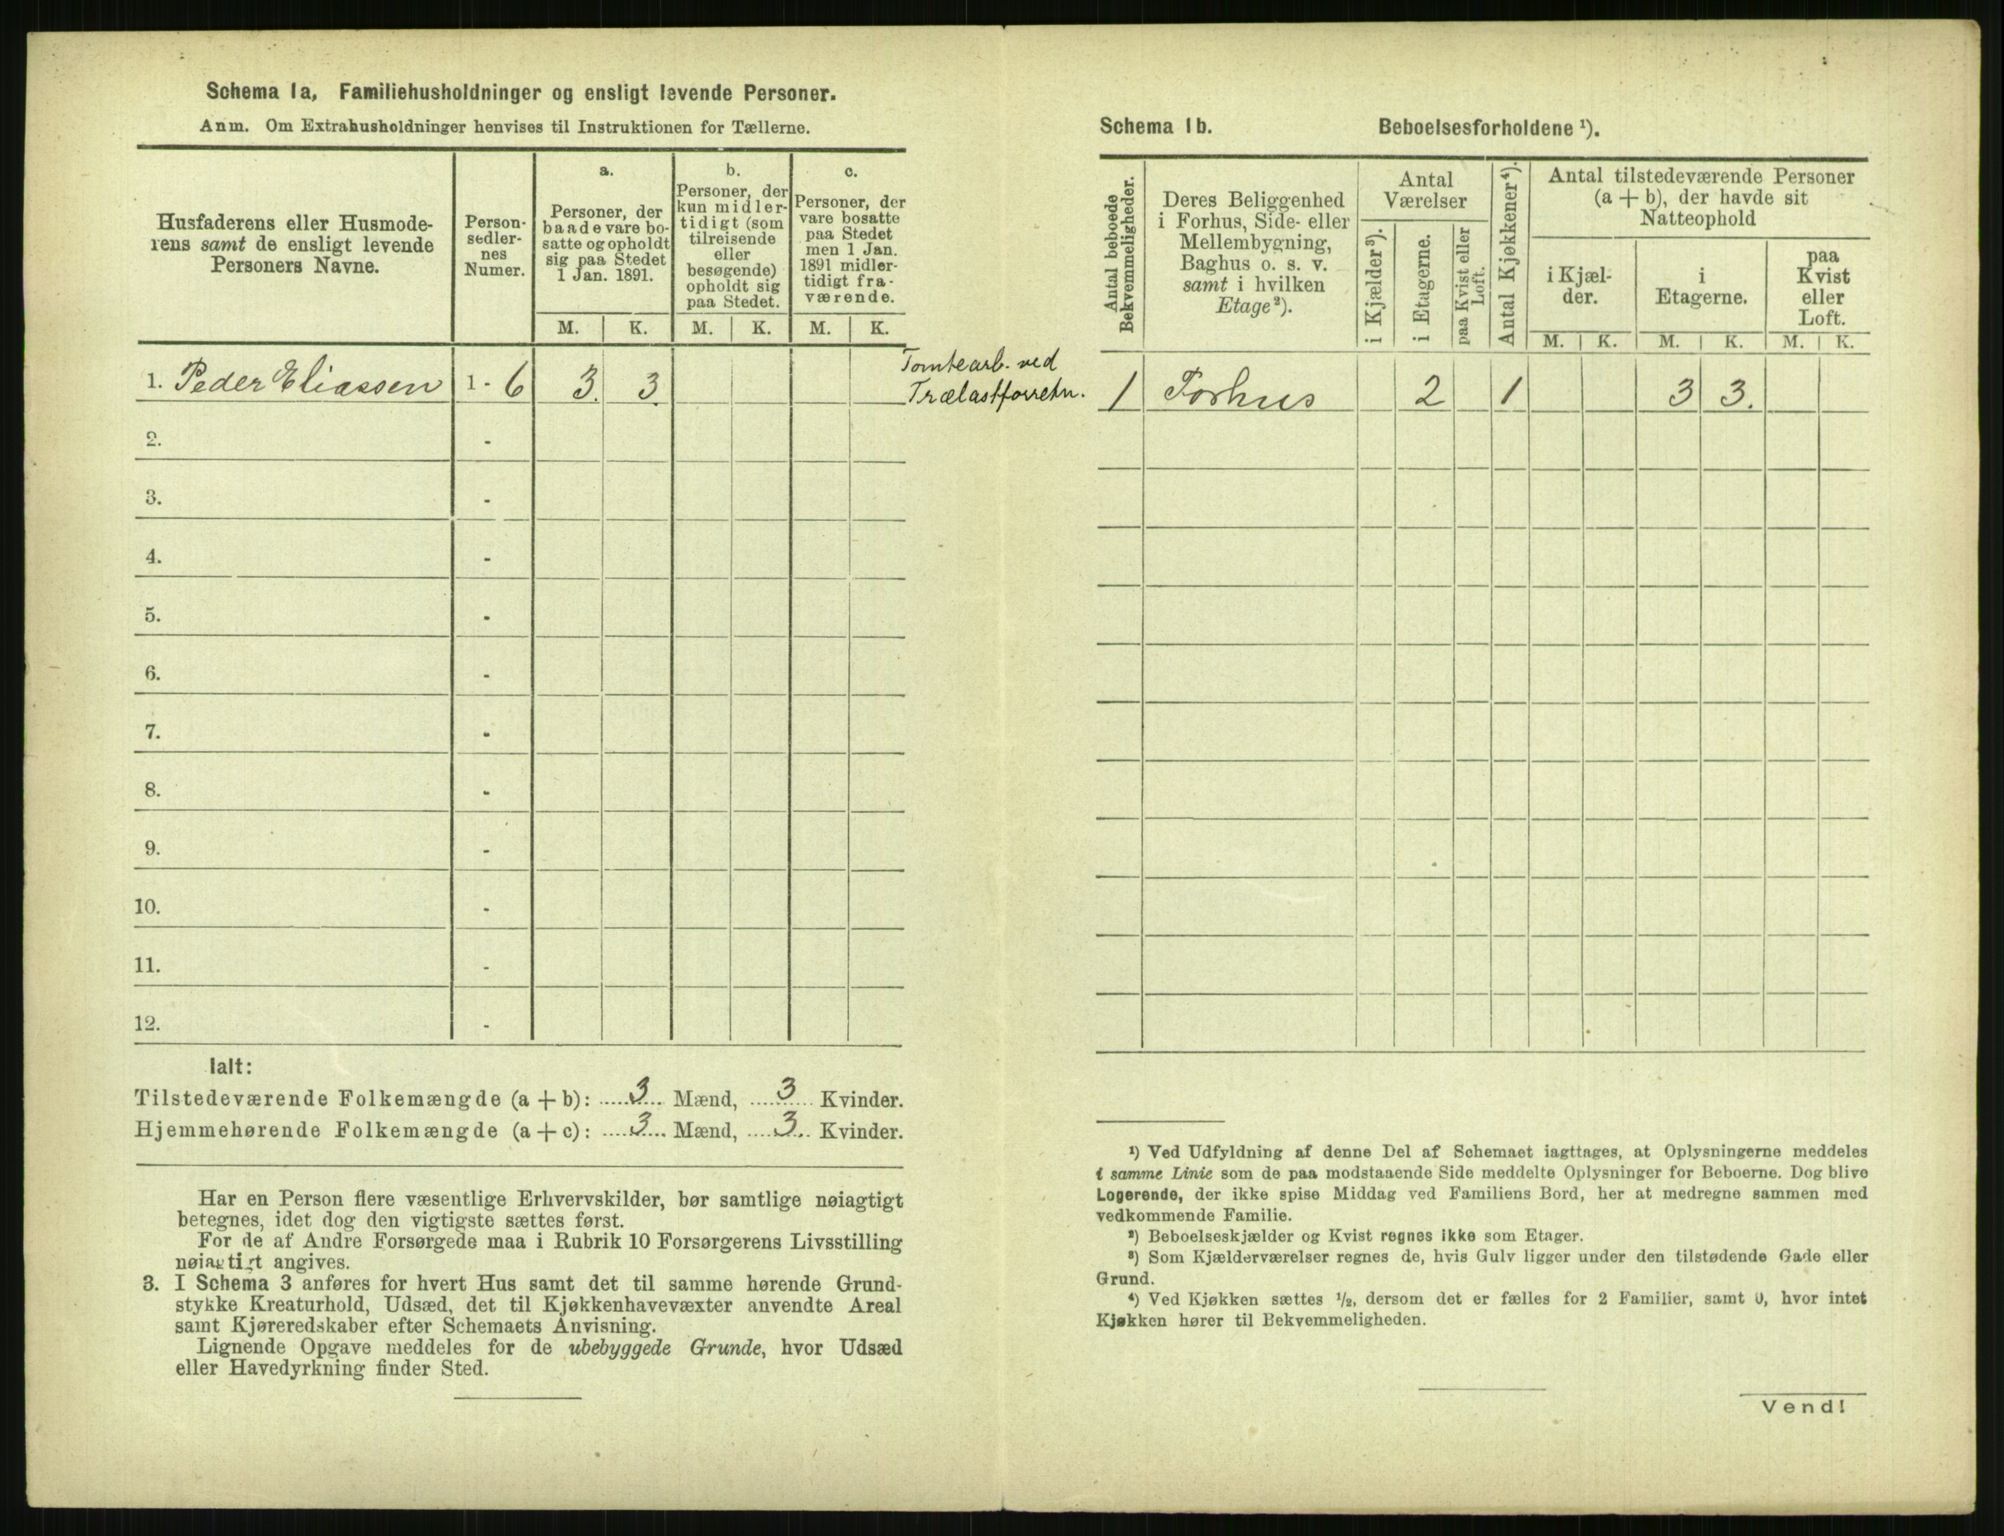 Schema 1a, Familiehusholdninger og ensligt levende Personer.
Anm. Om Extrahusholdninger henvises til Instruktionen for Tællerne.
Husfaderens eller Husmode-
rens samt de ensligt levende
Personers Navne.
Person-
sedler-
nes
Numer.
a.
Personer, der
baade vare bo-
satte og opholdt
sig paa Stedet
1 Jan. 1891.
b.
Personer, der
kun midler-
tidigt (som
tilreisende
eller
besøgende)
opholdt sig
paa Stedet.
c.
Personer, der
vare bosatte
paa Stedet
men 1 Jan.
1891 midler-
tidigt fra-
værende.
M. K. M. K. M. K.
1. Peder Eliassen 1 - 6 3. 3.
Tomtearb. ved
Trælastforretn.
2. -
3. -
4. -
5. -
6. -
7. -
8. -
9. -
10. -
11. -
12. -
Ialt:
Tilstedeværende Folkemængde (a + b): 3 Mænd, 3 Kvinder.
Hjemmehørende Folkemængde (a + c): 3 Mænd, 3 Kvinder.
Har en Person flere væsentlige Erhvervskilder, bør samtlige nøiagtigt
betegnes, idet dog den vigtigste sættes først.
For de af Andre Forsørgede maa i Rubrik 10 Forsørgerens Livsstilling
nøiagtigt angives.
3. I Schema 3 anføres for hvert Hus samt det til samme hørende Grund-
stykke Kreaturhold, Udsæd, det til Kjøkkenhavevæxter anvendte Areal
samt Kjøreredskaber efter Schemaets Anvisning.
Lignende Opgave meddeles for de ubebyggede Grunde, hvor Udsæd
eller Havedyrkning finder Sted.
Schema 1b. Beboelsesforholdene ¹).
Antal beboede
Bekvemmeligheder.
Deres Beliggenhed
i Forhus, Side- eller
Mellembygning,
Baghus o. s. v.
samt i hvilken
Etage²).
Antal
Værelser
i Kjælder³).
i Etagerne.
paa Kvist eller
Loft.
Antal Kjøkkener⁴).
Antal tilstedeværende Personer
(a + b), der havde sit
Natteophold
i Kjæl-
der.
i
Etagerne.
paa
Kvist
eller
Loft.
M. K. M. K. M. K.
1 Forhus 2 1 3 3.
¹) Ved Udfyldning af denne Del af Schemaet iagttages, at Oplysningerne meddeles
i samme Linie som de paa modstaaende Side meddelte Oplysninger for Beboerne. Dog blive
Logerende, der ikke spise Middag ved Familiens Bord, her at medregne sammen med
vedkommende Familie.
²) Beboelseskjælder og Kvist regnes ikke som Etager.
³) Som Kjælderværelser regnes de, hvis Gulv ligger under den tilstødende Gade eller
Grund.
⁴) Ved Kjøkken sættes ½, dersom det er fælles for 2 Familier, samt 0, hvor intet
Kjøkken hører til Bekvemmeligheden.
Vend!